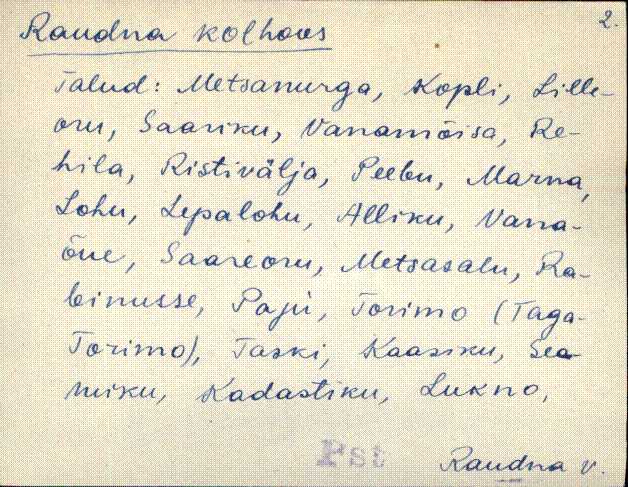 2.
Raudna kolhoos
Talud: Metsanurga, Kopli, Lille-
oru, Saariku, Vanamõisa, Re-
hila, Ristivälja, Peebu, Marna,
Lohu, Lepalohu, Alliku, Vana-
õue, Saareoru, Metsasalu, Ra-
binusse, Paju, Torimo (Taga-
Torimo), Taski, Kaasiku, Sea-
miku, Kadastiku, Lukno,
Pst
Raudna v.